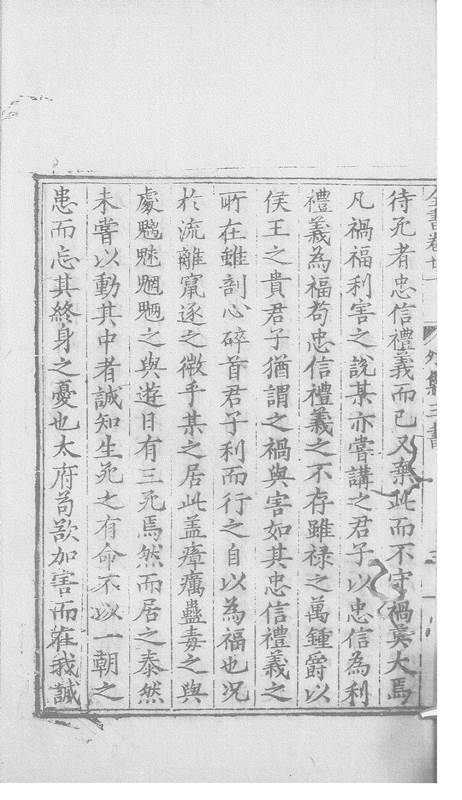 全書卷廿一 外集三 書
待死者忠信禮義而已又棄此而不守禍莫大焉
凡禍福利害之說某亦嘗講之君子以忠信為利
禮義為福苟忠信禮義之不存雖祿之萬鍾爵以
侯王之貴君子猶謂之禍與害如其忠信禮義之
所在雖剖心碎首君子利而行之自以為福也況
於流離竄逐之微乎某之居此盖瘴癘蠱毒之與
處魑魅魍魎之與遊日有三死焉然而居之泰然
未嘗以動其中者誠知生死之有命不以一朝之
患而忘其終身之憂也太府苟欲加害而在我誠